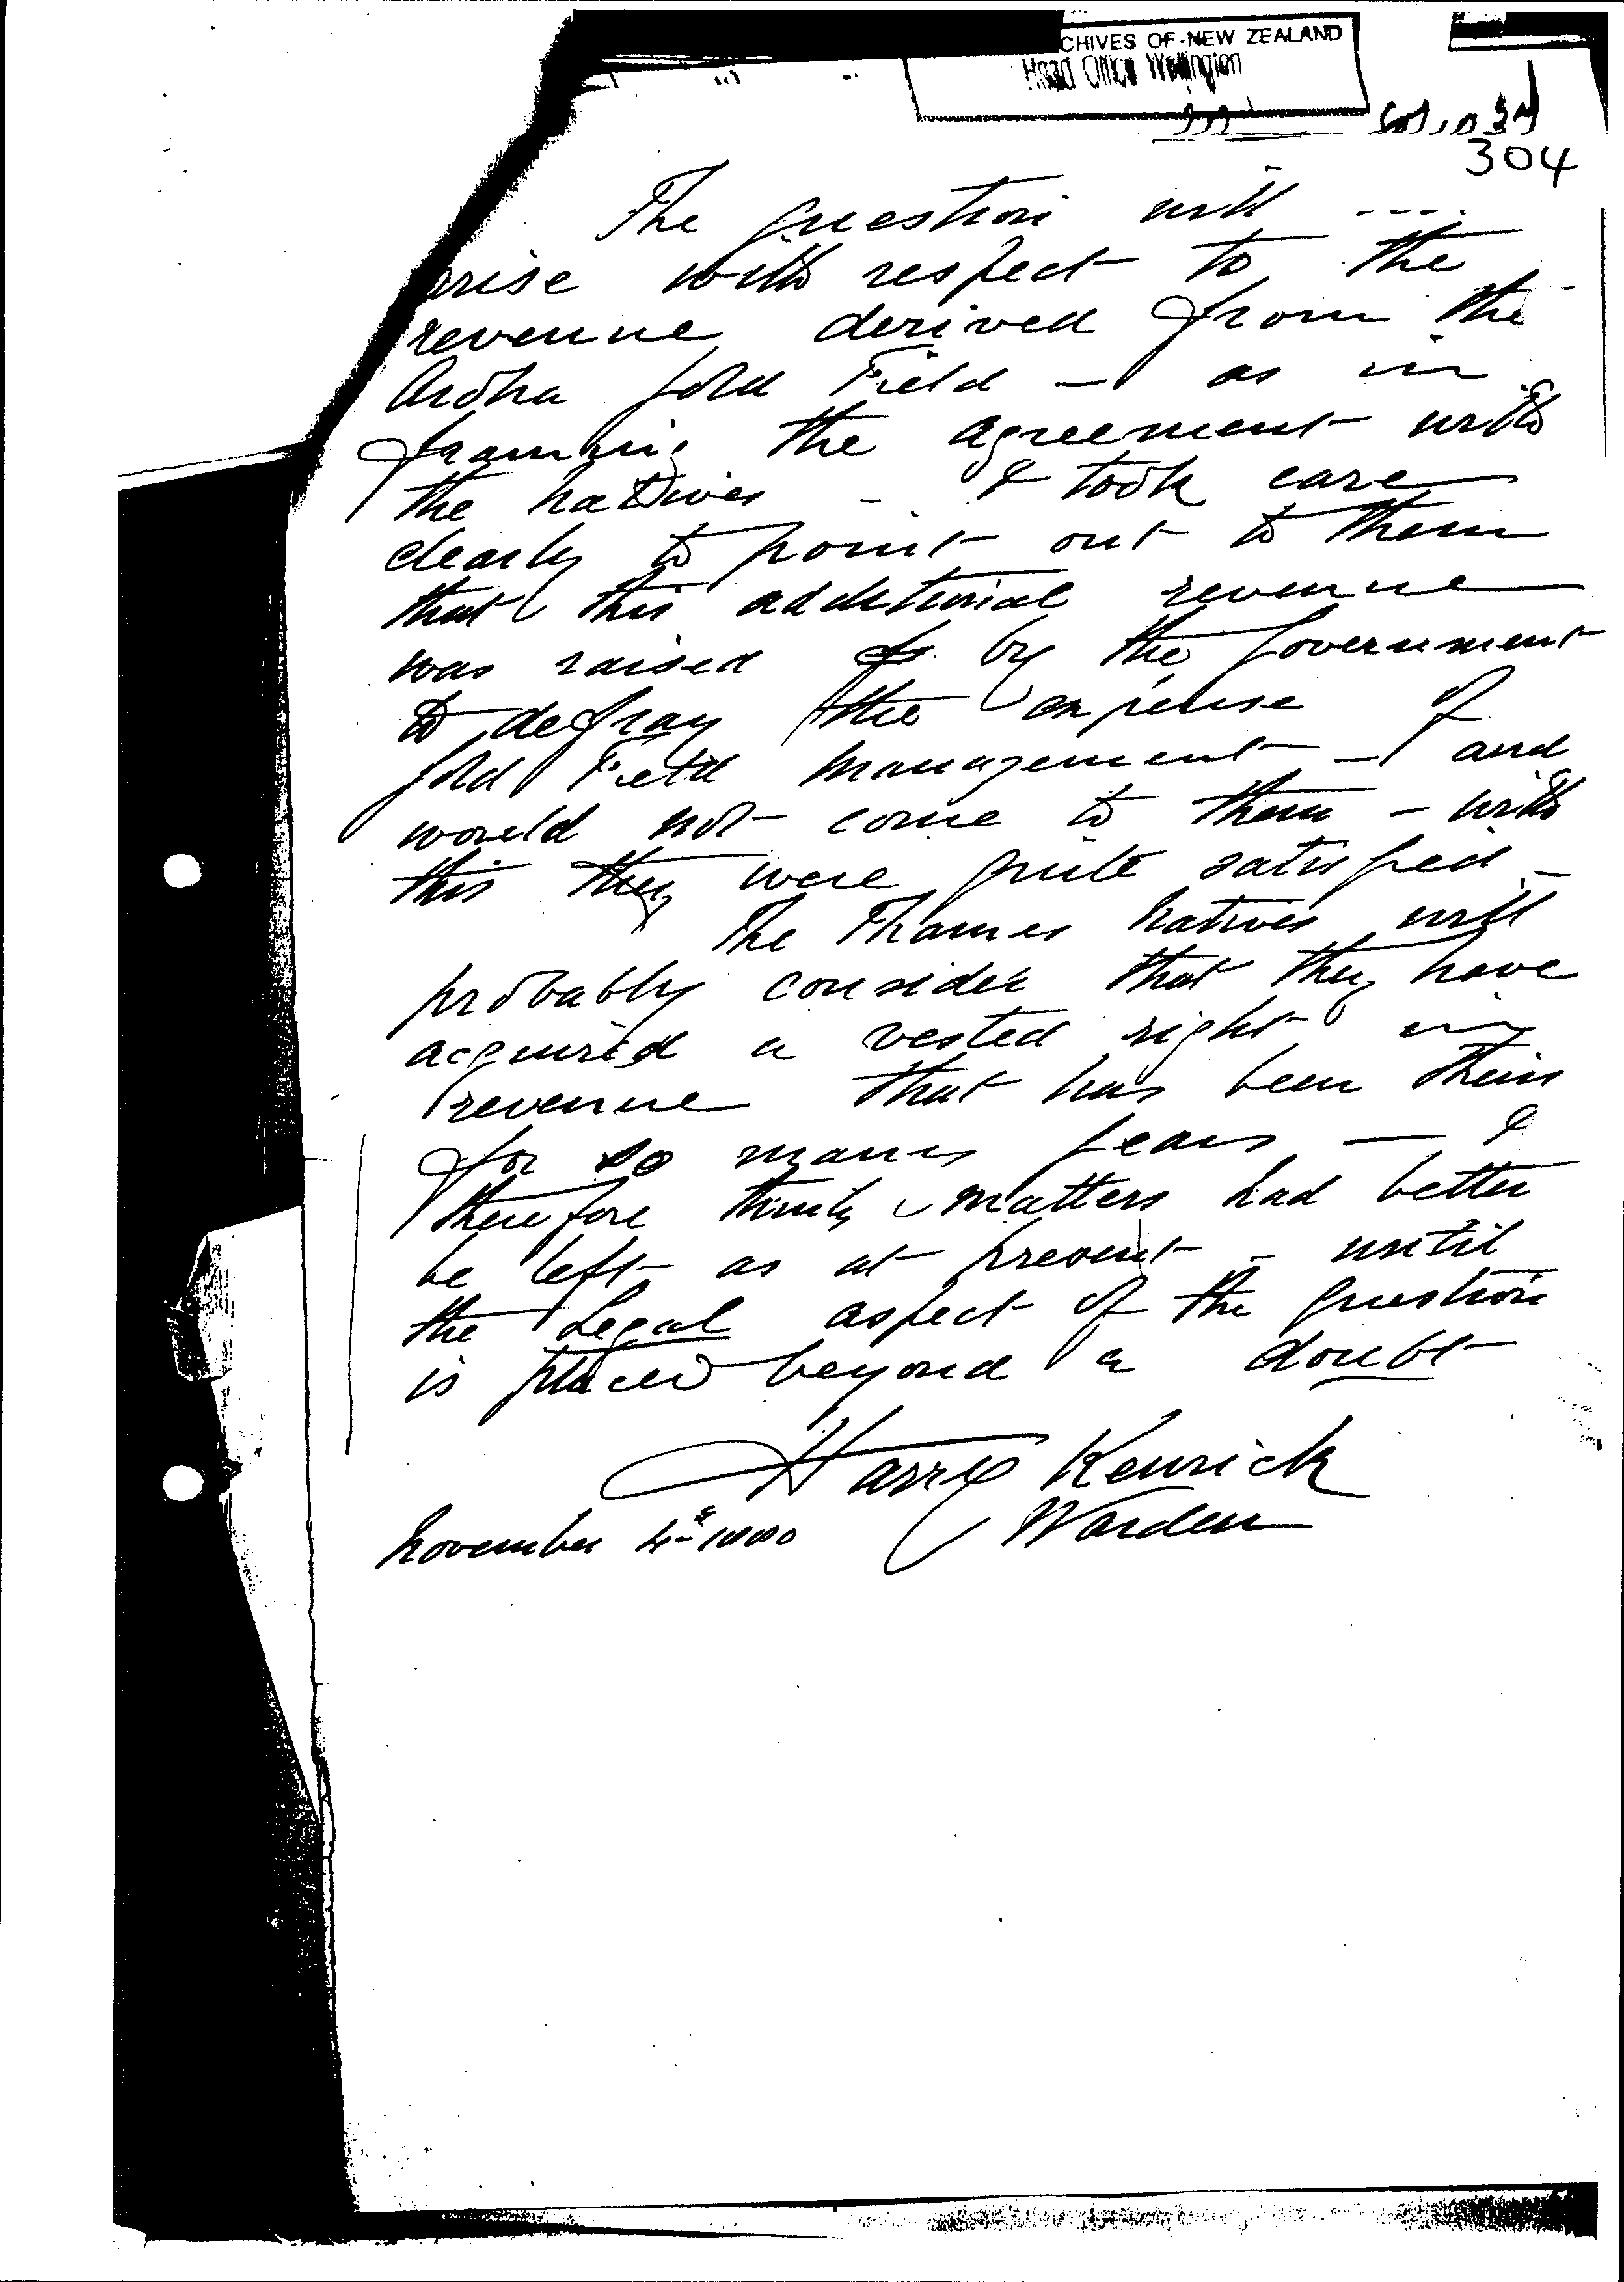 CHIVES OF NEW ZEALAND
Head Office Wellington
304
The question will
arise with respect to the
revenue derived from the
Aroha Gold Field — as in
framing the agreement with
the natives - I took care
clearly to point out to them
that this additional revenue
was raised by the Government
to defray the expense of
Gold Field management — and
would not come to them - with
this they were quite satisfied -
The Thames natives will
probably consider that they have
acquired a vested right in
revenue that has been theirs
for so many years — I
therefore think matters had better
be left as at present - until
the Legal aspect of the question
is placed beyond a doubt
Harry Kenrick
Warden
November 4th 1880